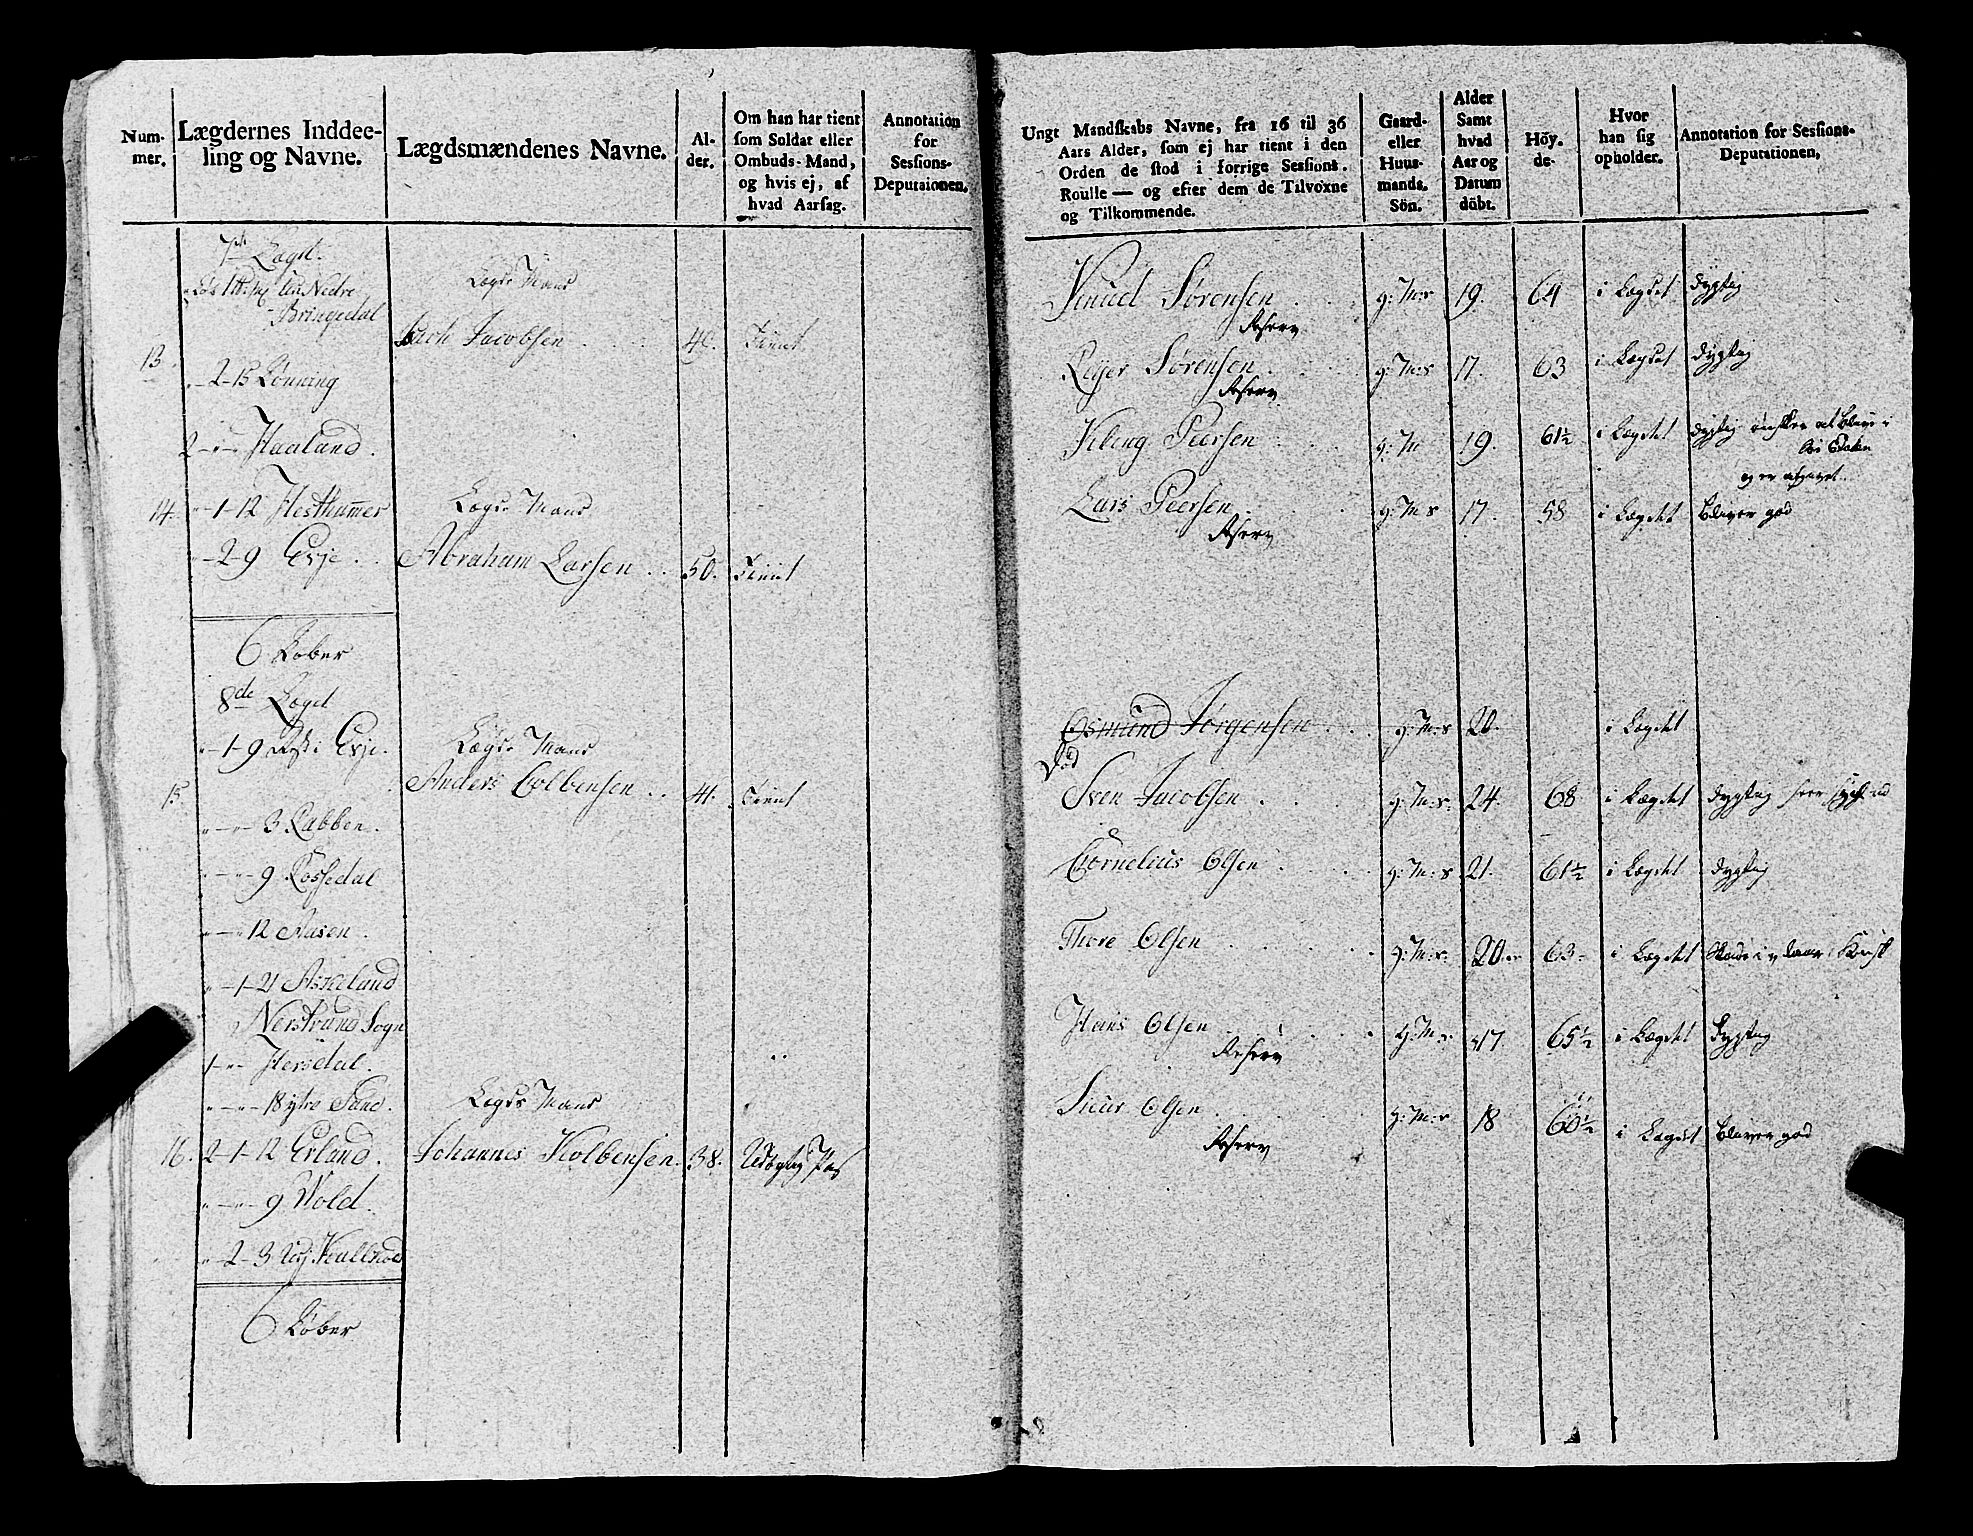 Num-
mer.
Lægdernes Inddee-
ling og Navne.
Lægdsmændenes Navne.
Al-
der.
Om han har tient
som Soldat eller
Ombuds-Mand,
og hvis ej, af
hvad Aarsag.
Annotation
for
Sessions-
Deputaionen.
7de Lægd.
1 Nedre
Bringedal
Lægds Mand
13. Jacobsen 40. Tient
2-15 Lønning
2 Haaland.
14. 1-12 Hesthammer Lægds Mand
2-9 Evje Abraham Larsen 50. Tient
6 Løber
8de Lægd
1-9 Evje. Lægds Mand
15. Anders Colbensen 41. Tient
3 Rabben.
9 Rossedal
12 Aasen.
1-21 Askeland
Nerstrand Sogn
1 Hersdal.
18 ytre Sand. Lægds Mand
16. 2-1-12 Erland. Johannes Kolbensen. 38.
9 Wold.
2-3
6 Løber
Ungt Mandskabs Navne, fra 16 til 36
Aars Alder, som ej har tient i den
Orden de stod i forrige Sessions-
Roulle — og efter dem de Tilvoxne
og Tilkommende.
Gaard-
eller
Huus-
mands.
Sön.
Alder
Samt
hvad
Aar og
Datum
döbt.
Höy-
de.
Hvor
han sig
opholder.
Annotation for Sessions-
Deputationen,
Knud Sørensen g: M:s 19. 64 i Lægdet dygtig
Reserv
Reier Sørensen g: M:s 17. 63 i Lægdet dygtig
Reserv
Peersen g: M 19. 61½ i Lægdet dygtig ønsker at blive i
Lars Peersen g: M:s 17. 58 i Lægdet bliver god
Reserv
Osmund Jørgensen g: M:s 20. i Lægdet
Død
Sven Jacobsen g: M:s. 24. 68 i Lægdet dygtig
Cornelius Olsen g: M:s 21. 61½ i Lægdet dygtig
Thore Olsen g: M:s. 20 63 i Lægdet
Hans Olsen g: M:s 17 65½ i Lægdet dygtig
Reserv
Siur Olsen g: M:s 18 60½ i Lægdet bliver god
Reserv